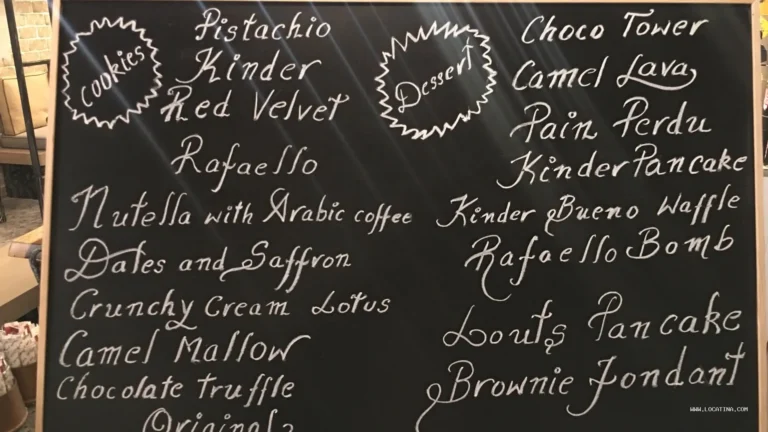 Cookies
Pistachio
Kinder
Red Velvet
Rafaello
Nutella with Arabic coffee
Dates and Saffron
Crunchy Cream Lotus
Camel Mallow
Chocolate truffle
Original
Dessert
Choco Tower
Camel Lava
Pain Perdu
Kinder Pancake
Kinder Bueno Waffle
Rafaello Bomb
Louts Pancake
Brownie Fondant
WWW.LOCATINA.COM